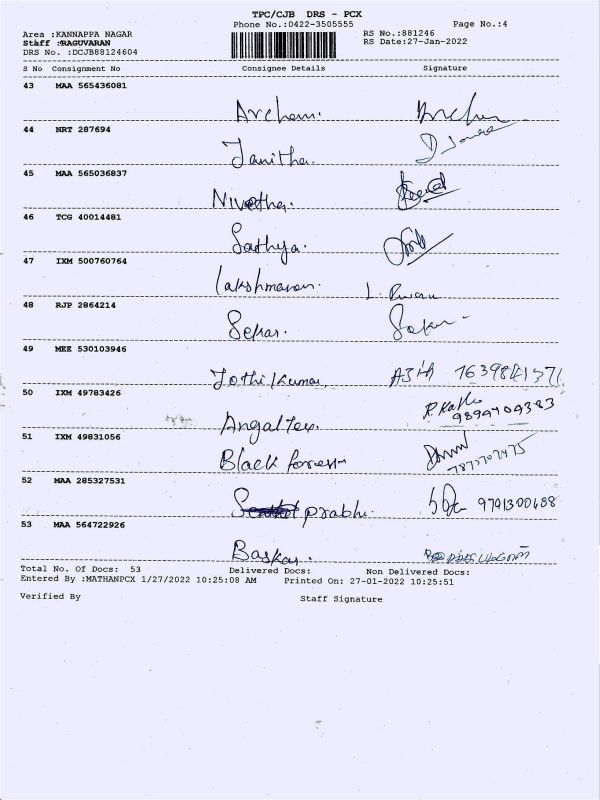 TPC/CJB DRS - PCX
Phone No.:0422-3505555 Page No.:4
Area :KANNAPPA NAGAR RS No.:881246
Staff :RAGUVARAN RS Date:27-Jan-2022
DRS No. :DCJB88124604
S No Consignment No Consignee Details Signature
43 MAA 565436081
Archana.
44 NRT 287694
Janitha.
45 MAA 565036837
Nivetha.
46 TCG 40014481
Sathya.
47 IXM 500760764
Lakshmanan. L.
48 RJP 2864214
Sekar.
49 MEE 530103946
Jothi Kumar
50 IXM 49783426
Angal Tex. 9894409383
51 IXM 49831056
Black forest
52 MAA 285327531
prabhu. 9791300688
53 MAA 564722926
Baskar.
Total No. Of Docs: 53 Delivered Docs: Non Delivered Docs:
Entered By :MATHANPCX 1/27/2022 10:25:08 AM Printed On: 27-01-2022 10:25:51
Verified By Staff Signature